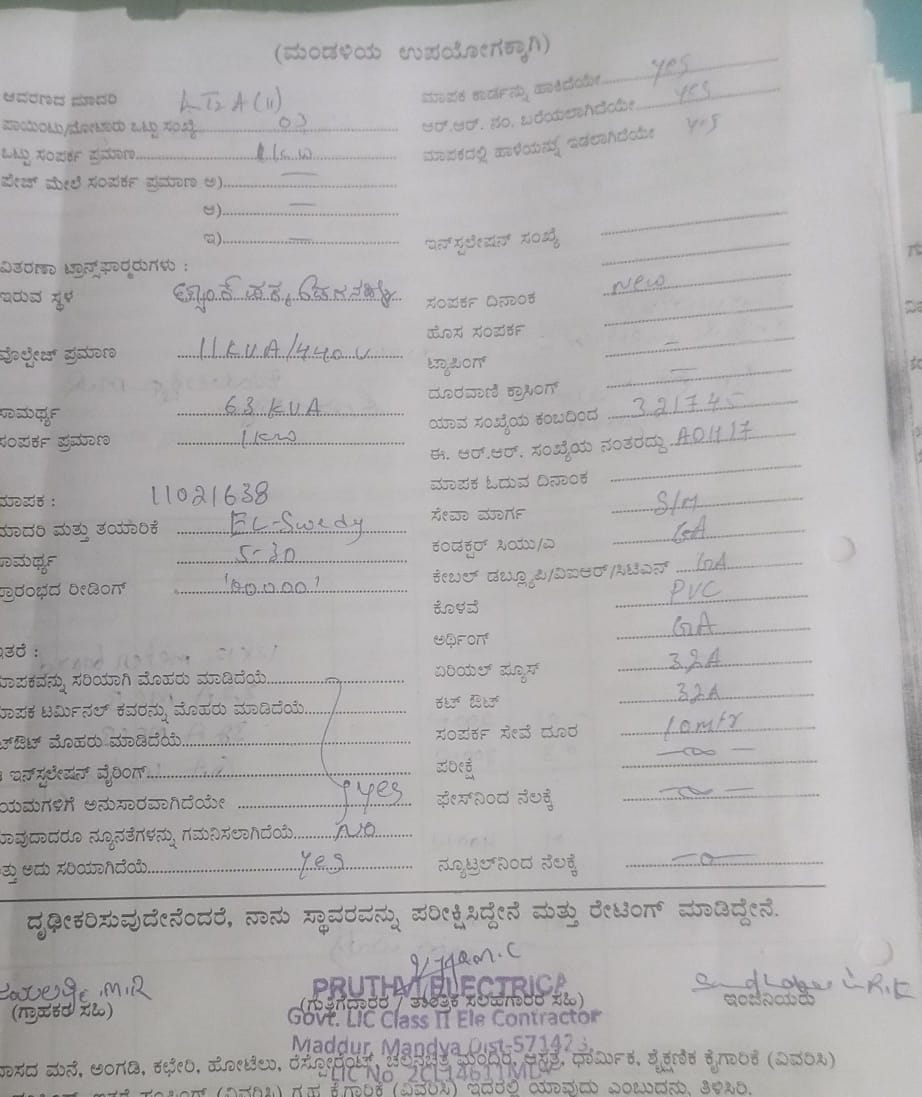 (ಮಂಡಳಿಯ ಉಪಯೋಗಕ್ಕಾಗಿ)
ಆವರಣದ ಮಾದರಿ LT2A(ii)
ಪಾಯಿಂಟು/ಮೋಟಾರು ಒಟ್ಟು ಸಂಖ್ಯೆ 03
ಒಟ್ಟು ಸಂಪರ್ಕ ಪ್ರಮಾಣ 1kw
ಪೇಜ್ ಮೇಲೆ ಸಂಪರ್ಕ ಪ್ರಮಾಣ ಅ) —
ಆ) —
ಇ) —
ವಿತರಣಾ ಟ್ರಾನ್ಸ್‌ಫಾರ್‍ಮರುಗಳು :
ಇರುವ ಸ್ಥಳ
ವೊಲ್ಟೇಜ್ ಪ್ರಮಾಣ 11KVA/440V
ಸಾಮರ್ಥ್ಯ 63 KVA
ಸಂಪರ್ಕ ಪ್ರಮಾಣ 1kw
ಮಾಪಕ : 11021638
ಮಾದರಿ ಮತ್ತು ತಯಾರಿಕೆ EL-Swedy
ಸಾಮರ್ಥ್ಯ 5-30
ಪ್ರಾರಂಭದ ರೀಡಿಂಗ್
ಇತರೆ :
ಮಾಪಕವನ್ನು ಸರಿಯಾಗಿ ಮೊಹರು ಮಾಡಿದೆಯೆ
ಮಾಪಕ ಟರ್ಮಿನಲ್ ಕವರನ್ನು ಮೊಹರು ಮಾಡಿದೆಯೆ
ಕಟ್‌ಔಟ್ ಮೊಹರು ಮಾಡಿದೆಯೆ
ಇನ್‌ಸ್ಟಲೇಷನ್ ವೈರಿಂಗ್
ನಿಯಮಗಳಿಗೆ ಅನುಸಾರವಾಗಿದೆಯೇ yes
ಯಾವುದಾದರೂ ನ್ಯೂನತೆಗಳನ್ನು ಗಮನಿಸಲಾಗಿದೆಯೆ NO
ಮತ್ತು ಅದು ಸರಿಯಾಗಿದೆಯೆ Yes
ಮಾಪಕ ಕಾರ್ಡನ್ನು ಹಾಕಿದೆಯೇ yes
ಆರ್.ಆರ್. ನಂ. ಬರೆಯಲಾಗಿದೆಯೇ yes
ಮಾಪಕದಲ್ಲಿ ಹಾಳೆಯನ್ನು ಇಡಲಾಗಿದೆಯೇ yes
ಇನ್‌ಸ್ಟಲೇಷನ್ ಸಂಖ್ಯೆ
ಸಂಪರ್ಕ ದಿನಾಂಕ New
ಹೊಸ ಸಂಪರ್ಕ
ಟ್ಯಾಪಿಂಗ್ —
ದೂರವಾಣಿ ಕ್ರಾಸಿಂಗ್ —
ಯಾವ ಸಂಖ್ಯೆಯ ಕಂಬದಿಂದ 321745
ಈ. ಆರ್.ಆರ್. ಸಂಖ್ಯೆಯ ನಂತರದ್ದು
ಮಾಪಕ ಓದುವ ದಿನಾಂಕ
ಸೇವಾ ಮಾರ್ಗ S/M
ಕಂಡಕ್ಟರ್ ಸಿಯು/ಎ
ಕೇಬಲ್ ಡಬ್ಲ್ಯೂಪಿ/ವಿಐಆರ್/ಸಿಟಿಎಸ್
ಕೊಳವೆ PVC
ಅರ್ಥಿಂಗ್
ಏರಿಯಲ್ ಫ್ಯೂಸ್ 32A
ಕಟ್ ಔಟ್ 32A
ಸಂಪರ್ಕ ಸೇವೆ ದೂರ 10mtr
ಪರೀಕ್ಷೆ
ಫೇಸ್‌ನಿಂದ ನೆಲಕ್ಕೆ
ನ್ಯೂಟ್ರಲ್‌ನಿಂದ ನೆಲಕ್ಕೆ
ದೃಢೀಕರಿಸುವುದೇನೆಂದರೆ, ನಾನು ಸ್ಥಾವರವನ್ನು ಪರೀಕ್ಷಿಸಿದ್ದೇನೆ ಮತ್ತು ರೇಟಿಂಗ್ ಮಾಡಿದ್ದೇನೆ.
PRUTHVI ELECTRICAL
(ಗ್ರಾಹಕರ ಸಹಿ) (ಗುತ್ತಿಗೆದಾರರ / ತಾಂತ್ರಿಕ ಸಲಹಗಾರರ ಸಹಿ) ಇಂಜಿನಿಯರು
Govt. LIC Class II Ele Contractor
Maddur, Mandya Dist-571423
ವಾಸದ ಮನೆ, ಅಂಗಡಿ, ಕಛೇರಿ, ಹೋಟೆಲು, ರೆಸ್ಟೋರೆಂಟ್, ಚಲನಚಿತ್ರ ಮಂದಿರ, ಆಸ್ಪತ್ರೆ, ಧಾರ್ಮಿಕ, ಶೈಕ್ಷಣಿಕ ಕೈಗಾರಿಕೆ (ವಿವರಿಸಿ)
LIC No.
(ವಿವರಿಸಿ) ಗೃಹ ಕೈಗಾರಿಕೆ (ವಿವರಿಸಿ) ಇದರಲ್ಲಿ ಯಾವುದು ಎಂಬುದನ್ನು ತಿಳಿಸಿರಿ.